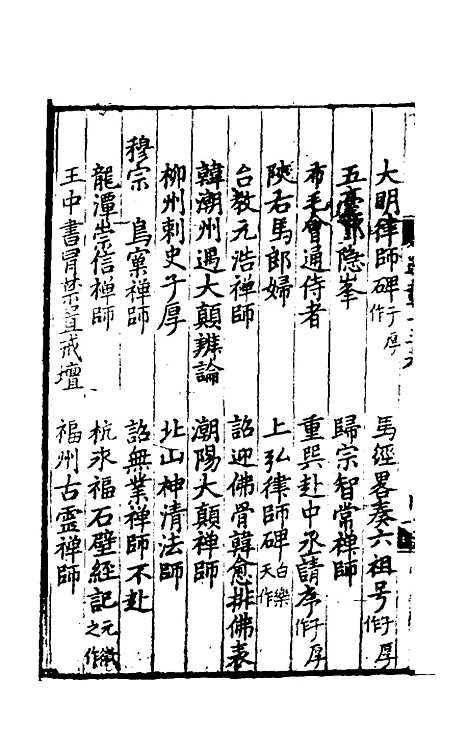 大明律師碑 子厚作
馬經畧奏六祖号 子厚作
五臺鄧隐峯
歸宗智常禅師
布毛會通侍者
重巽赴中丞請序 子厚作
陝右馬郎婦
上弘律師碑 白樂天作
台教元浩禅師
詔迎佛骨韓愈排佛表
韓潮州遇大顛辨論
潮陽大顛禅師
柳州刺史子厚
北山神清法師
穆宗 鳥窠禅師
詔無業禅師不赴
龍潭崇信禅師
杭永福石壁經記 元之作
王中書冐禁置戒壇
福州古霊禅師